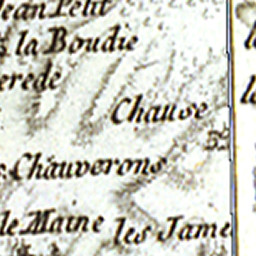 Jean Petit
la Boudie
erede
Chause
Chauverons
le Maine les Jame